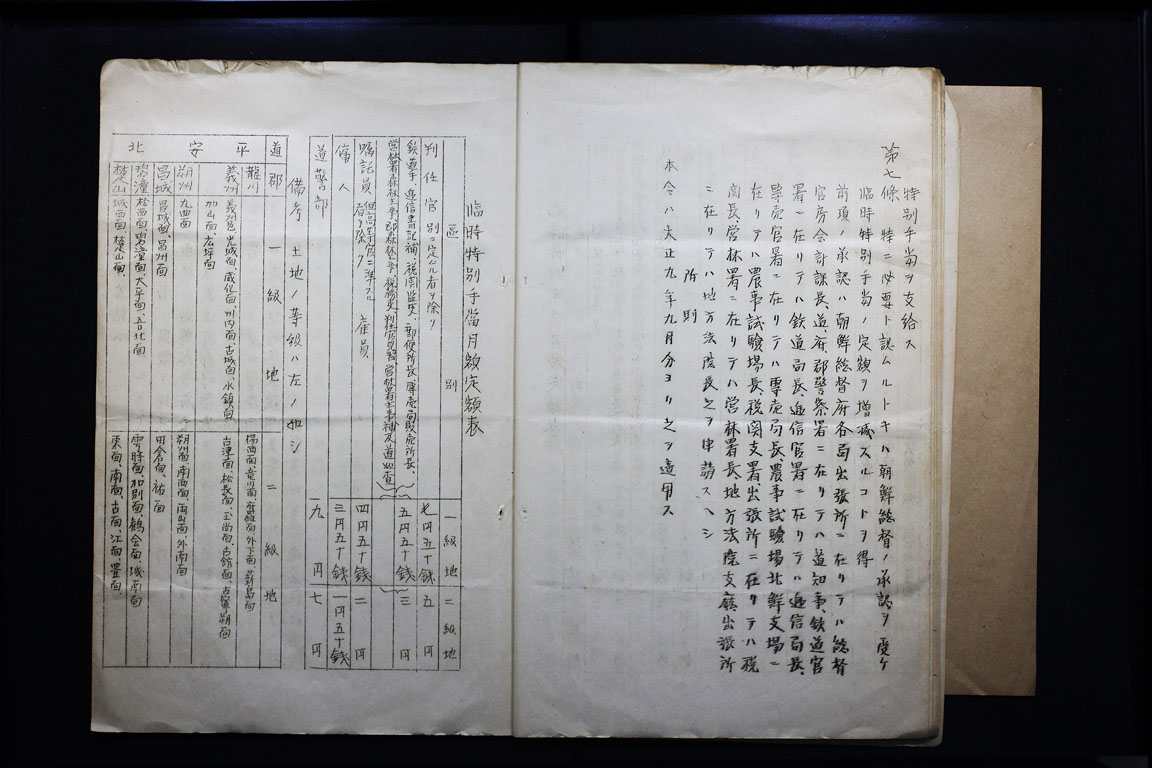 特別手当ヲ支給ス
第七條 特ニ必要ト認ムルトキハ朝鮮総督ノ承認ヲ受ケ
臨時特別手当ノ定額ヲ増減スルコトヲ得
前項ノ承認ハ朝鮮総督府各局出張所ニ在リテハ総督
官房会計課長、道府郡警察署ニ在リテハ道知事、鉄道官
署ニ在リテハ鉄道局長、逓信官署ニ在リテハ逓信局長、
専売官署ニ在リテハ専売局長、農事試験場北鮮支場ニ
在リテハ農事試験場長、税関支署、出張所ニ在リテハ税
関長、営林署ニ在リテハ営林署長、地方法院支廳出張所
ニ在リテハ地方法院長之ヲ申請スヘシ
附則
本令ハ大正九年九月分ヨリ之ヲ適用ス
臨時特別手當月額定額表
區別 一級地 二級地
判任官 別ニ定ムル者ヲ除ク 七円五十銭 五円
鉄道手、逓信書記補、税関監吏、郵便所長、専売局販売所長、
営林署森林主事、郡森林主事、税務吏、判任官見習、営林署主事補及道巡査 五円五十銭 三円
嘱託員 但高等官ニ準スル者ヲ除ク 雇員 四円五十銭 二円
傭人 三円五十銭 一円五十銭
道警部 九円 七円
備考 土地ノ等級ハ左ノ如シ
道 郡 一級地 二級地
平安北
龍川 楊西面、
義州 義州邑、光城面、威化面、州内面、古城面、水鎮面、
加山面、広坪面 古津面、松長面、玉尚面、古館面、古寧朔面
朔州 九曲面 朔州面、南西面、両山面、外南面
昌城 昌城面、昌州面 田倉面、祐面
碧潼 松西面、碧潼面、大平面、吾北面 雲時面、加別面、鶴会面、城南面
楚山 城西面、楚山面、 東面、南面、古面、江面、豊面、